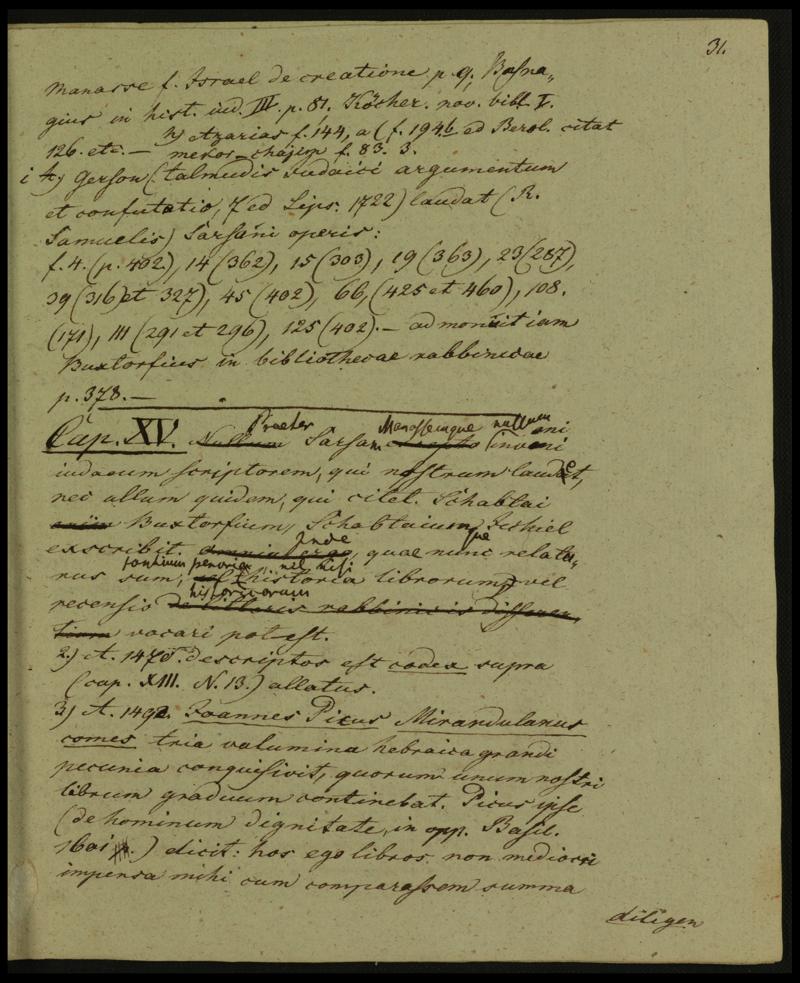 31.
Manasse f. Israel de creatione p. 9, Basna„
gius in hist. iud. IV. p. 81. Köcher. nov. bibl. I.
3) Azarias f. 144, a (f. 194b ed Berol. citat
126. etc. — mekor chajim f. 83. 3.
4) Gerson (talmudis Iudaici argumentum
et confutatio, 7 ed Lips. 1722) laudat (R.
Samuelis) Sarsani operis:
f. 4. (p. 402), 14 (362), 15 (303), 19 (363), 23 (287),
39 (316) et 327), 45 (402), 66, (425 et 460), 108.
(171), 111 (291 et 296), 125 (402). — admonuit iam
Buxtorfius in bibliothecae rabbinicae
p. 378. —
Praeter Manassemque nullum
Cap. XV. Nullum Sarsani excepto inveni
iudaeum scriptorem, qui nostrum laudet,
nec ullum quidem, qui citet. Schabtai
Buxtorfium, Schabtaium Iechiel
Inde que
exscribit. omnia ergo, quae nunc relatu„
nil nisi
rus sum, historia librorum vel
historicorum
recensio de libris rabbinicis
vocari potest.
2.) A. 1470. descriptos est codex supra
(cap. XIII. N. 13.) allatus.
3) A. 1492. Joannes Picus Mirandulanus
comes tria volumina hebraica grandi
pecunia conquisivit, quorum unum nostri
librum graduum continebat. Picus ipse
(de hominum dignitate, in opp. Basil.
1601.) dicit: hos ego libros non mediocri
impensa mihi cum comparassem summa
diligen